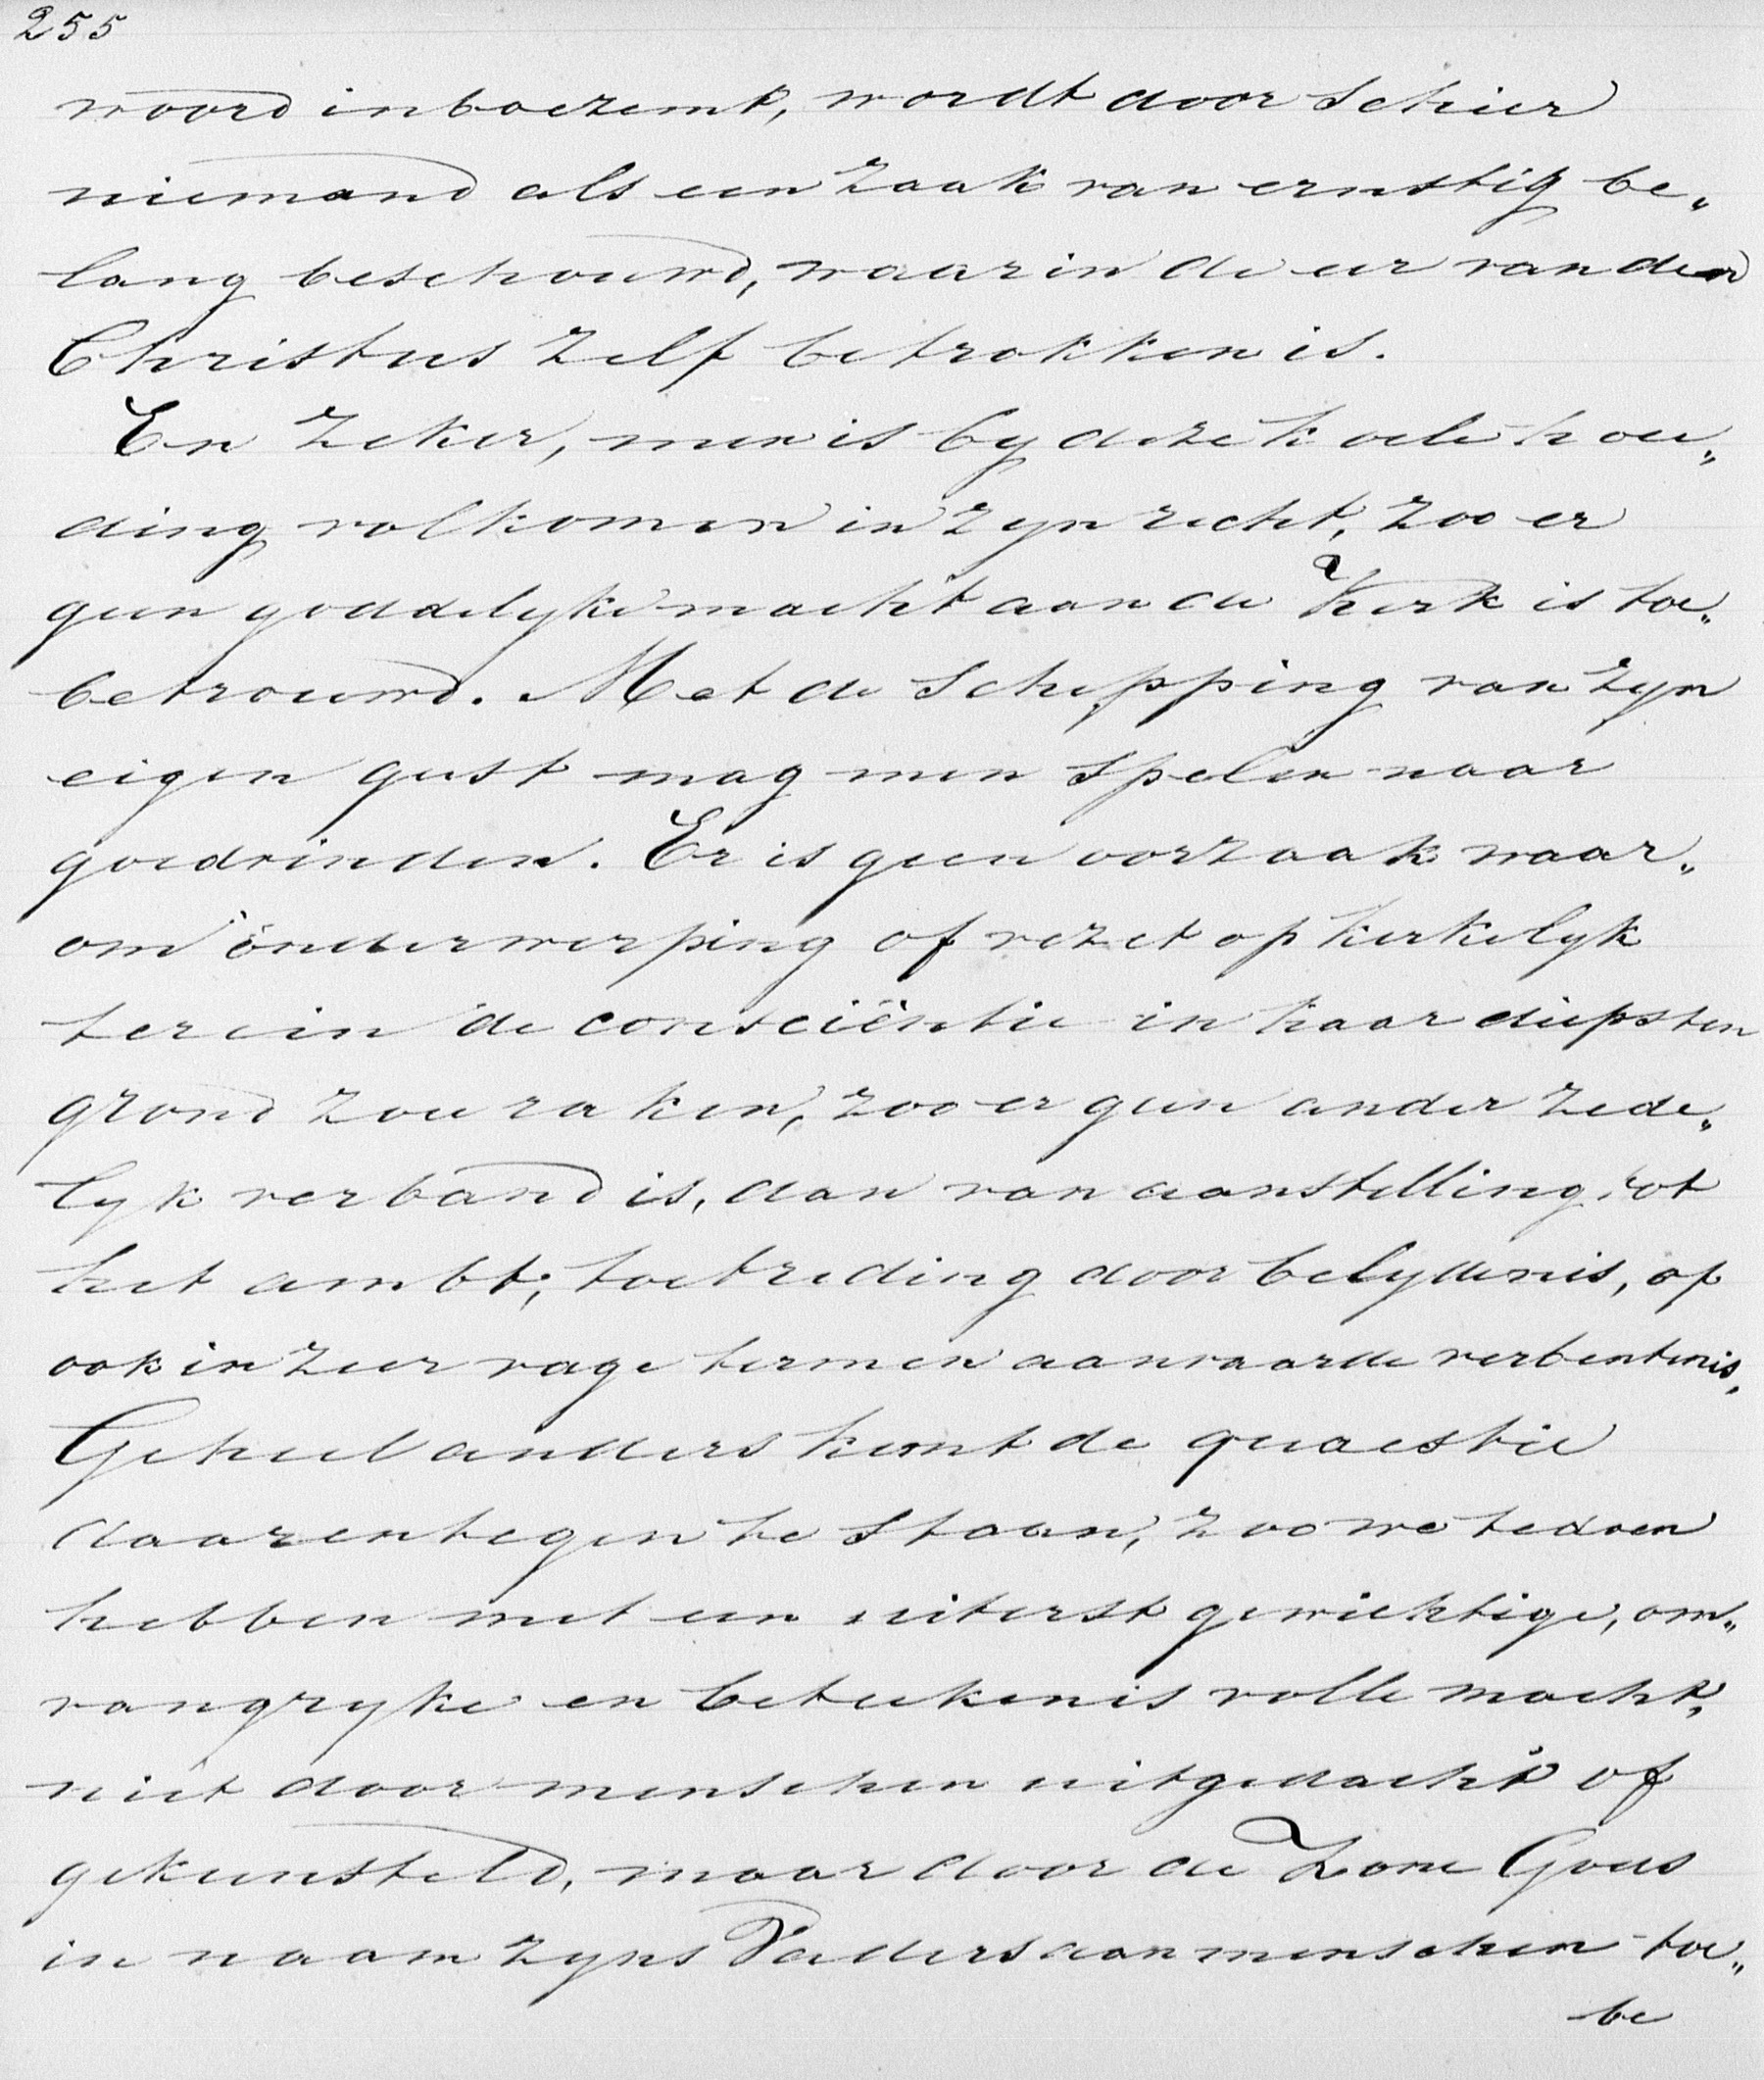 255
woord inboezemt, wordt door schier
niemand als een zaak van ernstig be„
lang beschouwd, waarin de eer van den
Christus zelf betrokken is.
En zeker, men is by deze koele hou„
ding volkomen in zyn recht, zoo er
geen goddelyke macht aan de Kerk is toe„
betrouwd. Met de schepping van zyn
eigen geest mag men spelen naar
goedvinden. Er is geen oorzaak waar„
om onderwerping of verzet op kerkelyk
terein de consciëntie in haar diepsten
grond zou raken, zoo er geen ander zede„
lyk verband is, dan van aanstelling tot
het ambt, toetreding door belydenis, of
ook in zeer vage termen aanvaarde verbentenis,
Geheel anders komt de quaestie
daarentegen te staan, zoo we te doen
hebben met een uiterst gewichtige, om„
vangryke en beteekenis volle macht,
niet door menschen uitgedacht of
gekunsteld, maar door de Zone Gods
in naam zyns Vaders aan menschen toe„
be